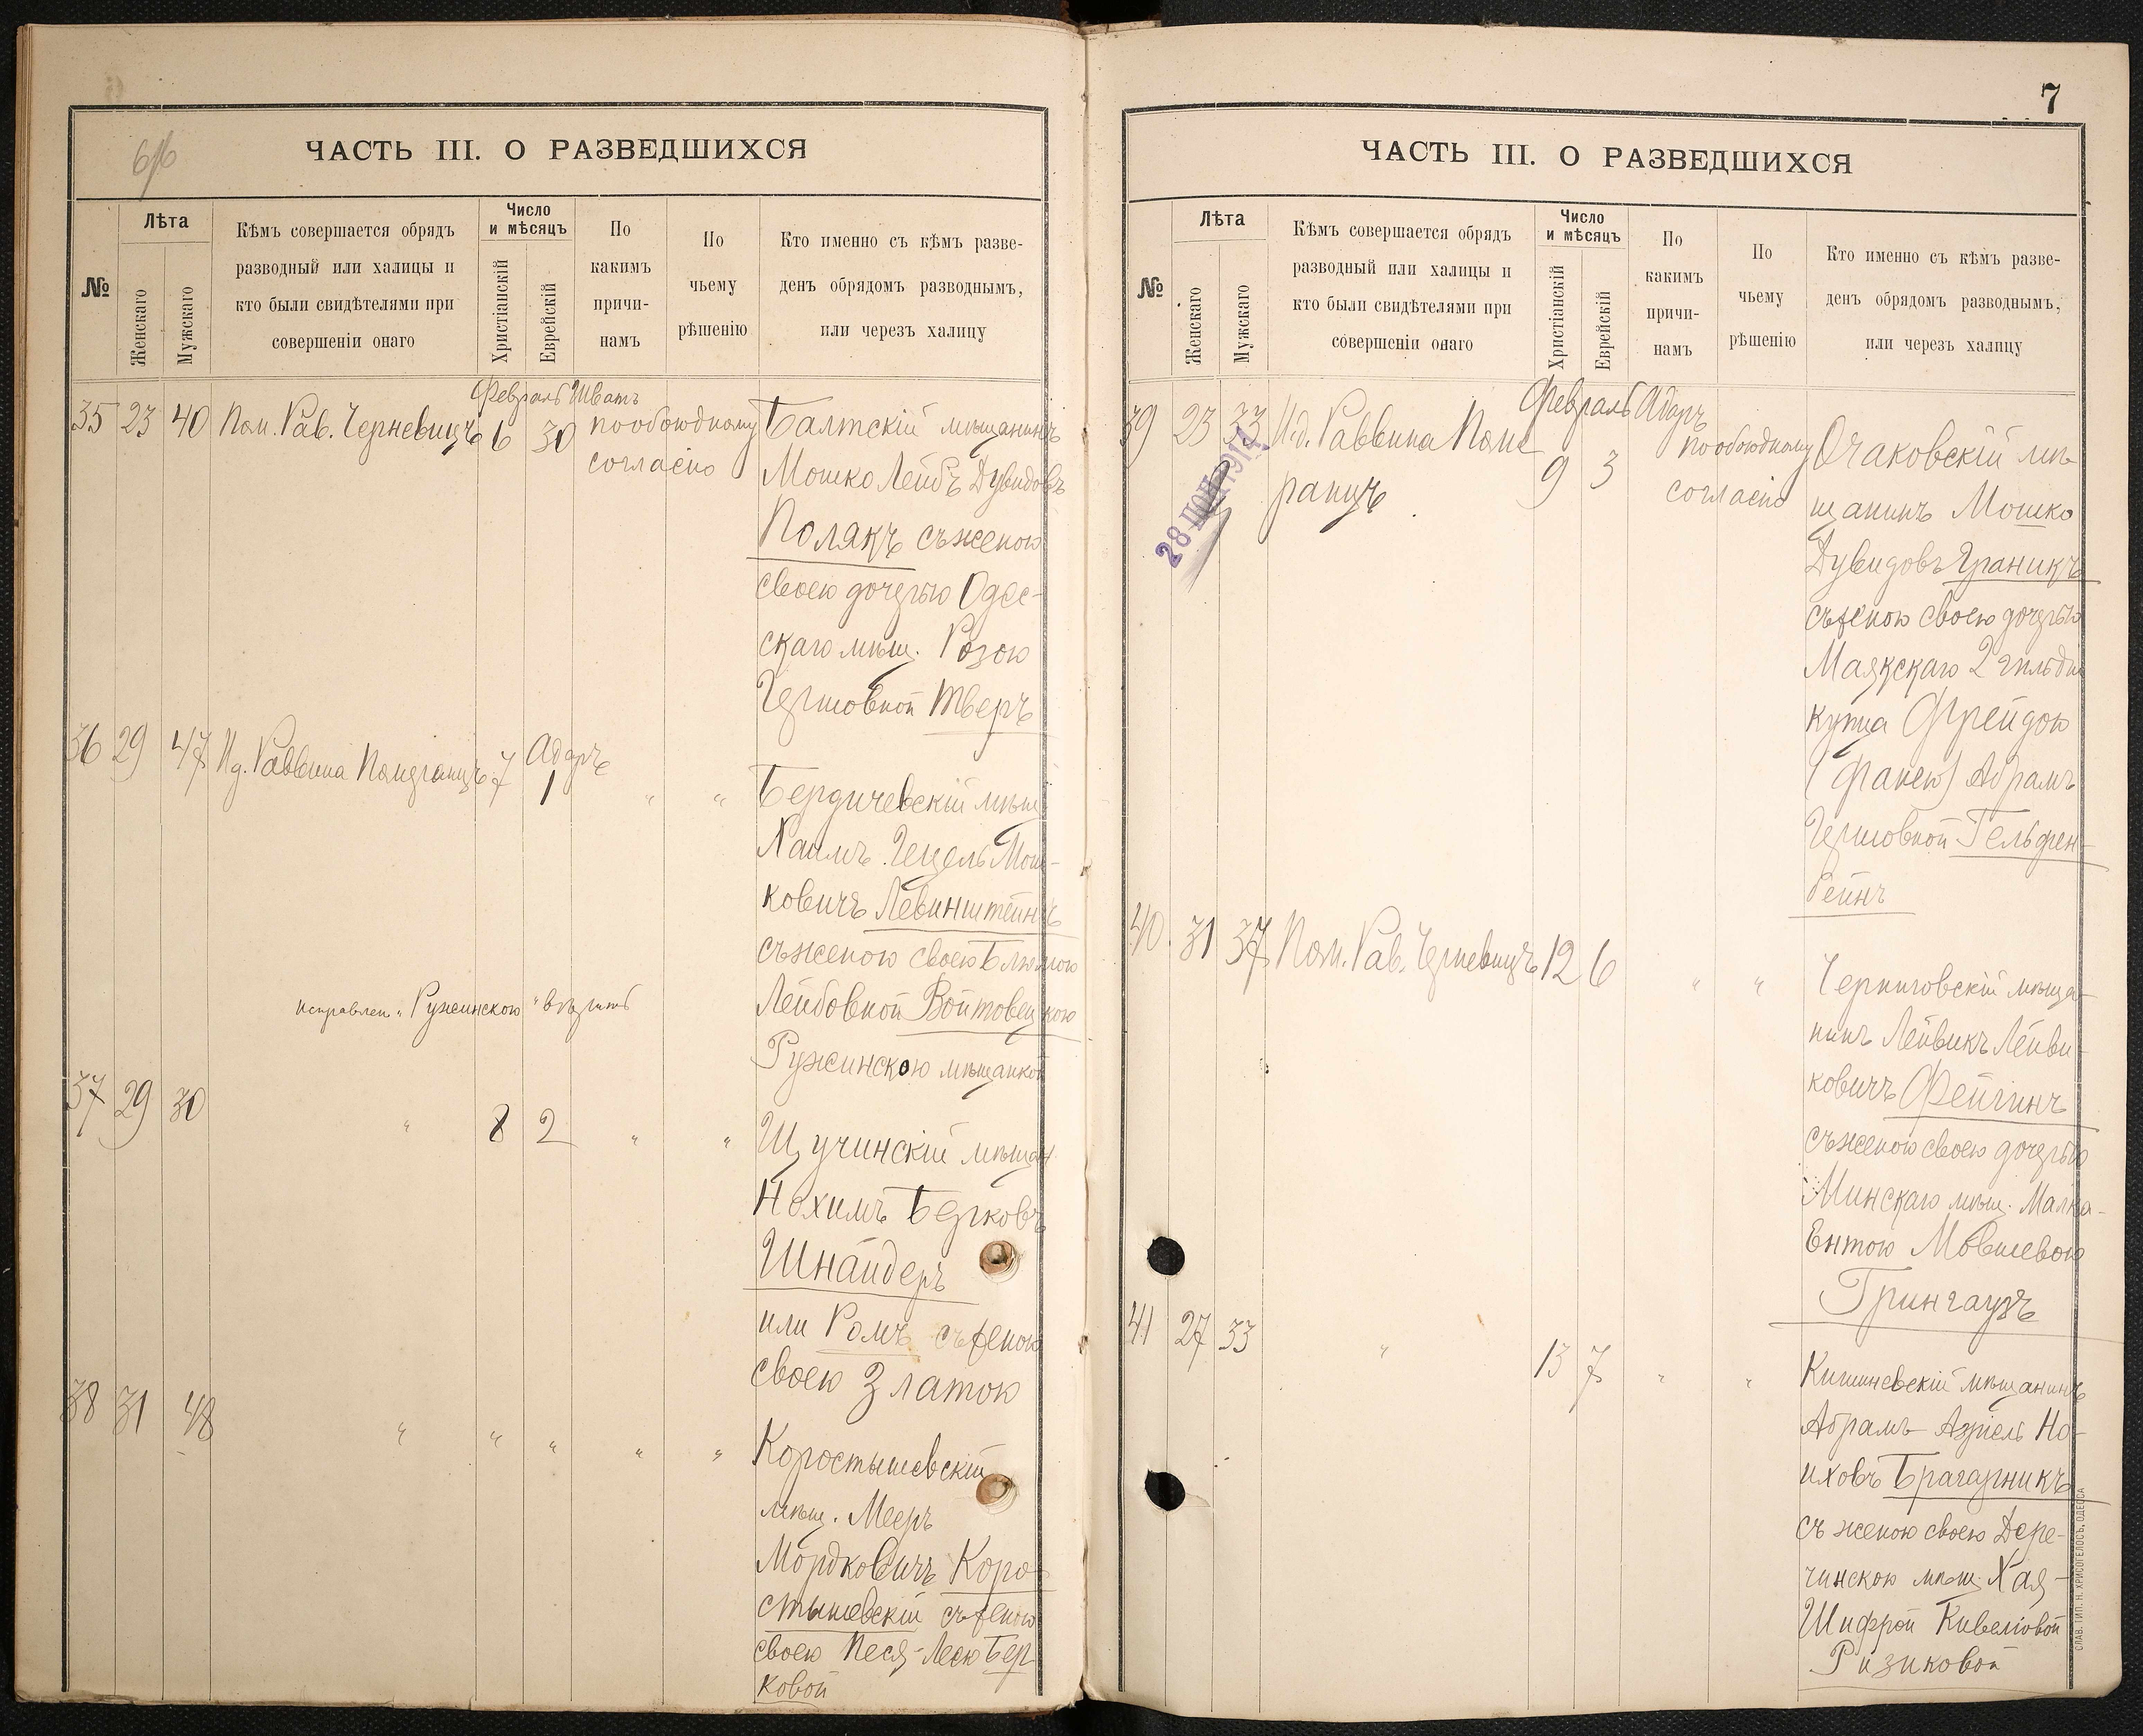 6/6
ЧАСТЬ III. О РАЗВЕДШИХСЯ
№
Лѣта
Женскаго
Мужскаго
Кѣмъ совершается обрядъ
разводный или халицы и
кто были свидѣтелями при
совершеніи онаго
Число
и мѣсяцъ
Христіанскій
Еврейскій
По
какимъ
причи-
намъ
По
чьему
рѣшенію
Кто именно съ кѣмъ разве-
денъ обрядомъ разводнымъ,
или черезъ халицу
Февраль Шватъ
35 23 40 Пом. Рав. Черневицъ 6 30 по обоюдному
согласію
Балтскій мѣщанинъ
Мошко Лейбъ Дувидовъ
Полякъ съ женою
своею дочерью Одес-
скаго мѣщ. Розою
Гершовной Тверъ
Адаръ
36 29 47 И.д. Раввина 7 1 " "
Бердичевскій мѣщ.
Хаимъ Гецель Мош-
ковичъ Левинштейнъ
съ женою своею Блюмою
Лейбовной Войтовецкою
Ружинскою мѣщанкой
исправлен. "Ружинскою" вѣрить
37 29 30 " 8 2 " "
Щучинскій мѣщан.
Нохимъ Берковъ
Шнайдеръ
или Ромъ съ женою
своею Златою
38 31 48 " " " " "
Коростышевскій
мѣщ. Мееръ
Мордковичъ Коро-
стышевскій съ женою
своею Песя-Леею Бер-
ковой
7
ЧАСТЬ III. О РАЗВЕДШИХСЯ
№
Лѣта
Женскаго
Мужскаго
Кѣмъ совершается обрядъ
разводный или халицы и
кто были свидѣтелями при
совершеніи онаго
Число
и мѣсяцъ
Христіанскій
Еврейскій
По
какимъ
причи-
намъ
По
чьему
рѣшенію
Кто именно съ кѣмъ разве-
денъ обрядомъ разводнымъ,
или черезъ халицу
Февраль Адаръ
39 23 33 И.д. Раввина 9 3 по обоюдному
согласію
28 1914
Очаковскій мѣ-
щанинъ Мошко
Дувидовъ Граникъ
съ женою своею дочерью
Маякскаго 2 гильдіи
купца Фрейдою
(Фанею) Абрамъ
Гершовной Гельфен-
бейнъ
40 31 37 Пом. Рав. Черневицъ 12 6 " "
Черниговскій мѣща-
нинъ Лейвикъ Лейви-
ковичъ Фейгинъ
съ женою своею дочерью
Минскаго мѣщ. Малка-
Ентою Мовшевою
Грингаузъ
41 27 33 " 13 7 " "
Кишиневскій мѣщанинъ
Абрамъ-Азріель Но-
иховъ Брагарникъ
съ женою своею Дере-
чинскою мѣщ. Хая-
Шифрой Кивеліовой
Ризиковой
СЛАВ. ТИП. Н. ХРИСОГЕЛОСЪ, ОДЕССА